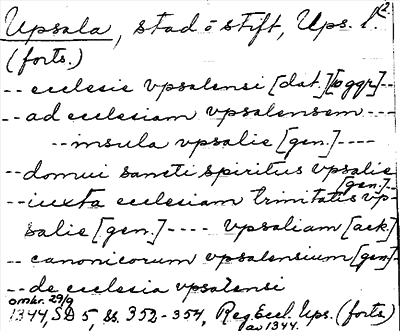 Upsala, stad o stift, Ups. l. 2.
(forts.)
-- ecclesie vpsalensi [dat.] [oggr.]--
-- ad ecclesiam vpsalensem ----
-- insula vpsalie [gen.] ----
-- domui sancti spiritus vpsalie [gen.]--
-- iuxta ecclesiam trinitatis vp-
salie [gen.] ---- vpsaliam [ack.]
-- canonicorum vpsalensium [gen.]
-- de ecclesia vpsalensi
omkr. 29/9
1344, SD 5, ss. 352-354, Reg. Eccl. Ups. (forts)
av 1344.